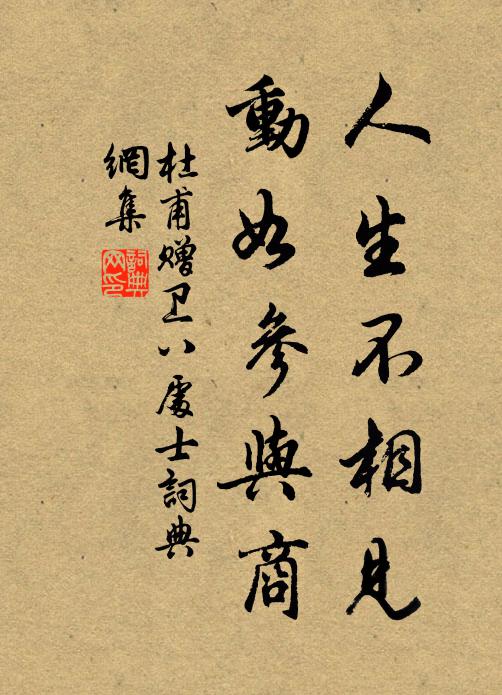 人生不相見
動如參與商
杜甫赠卫八處士詞典
網集
詞典
网印